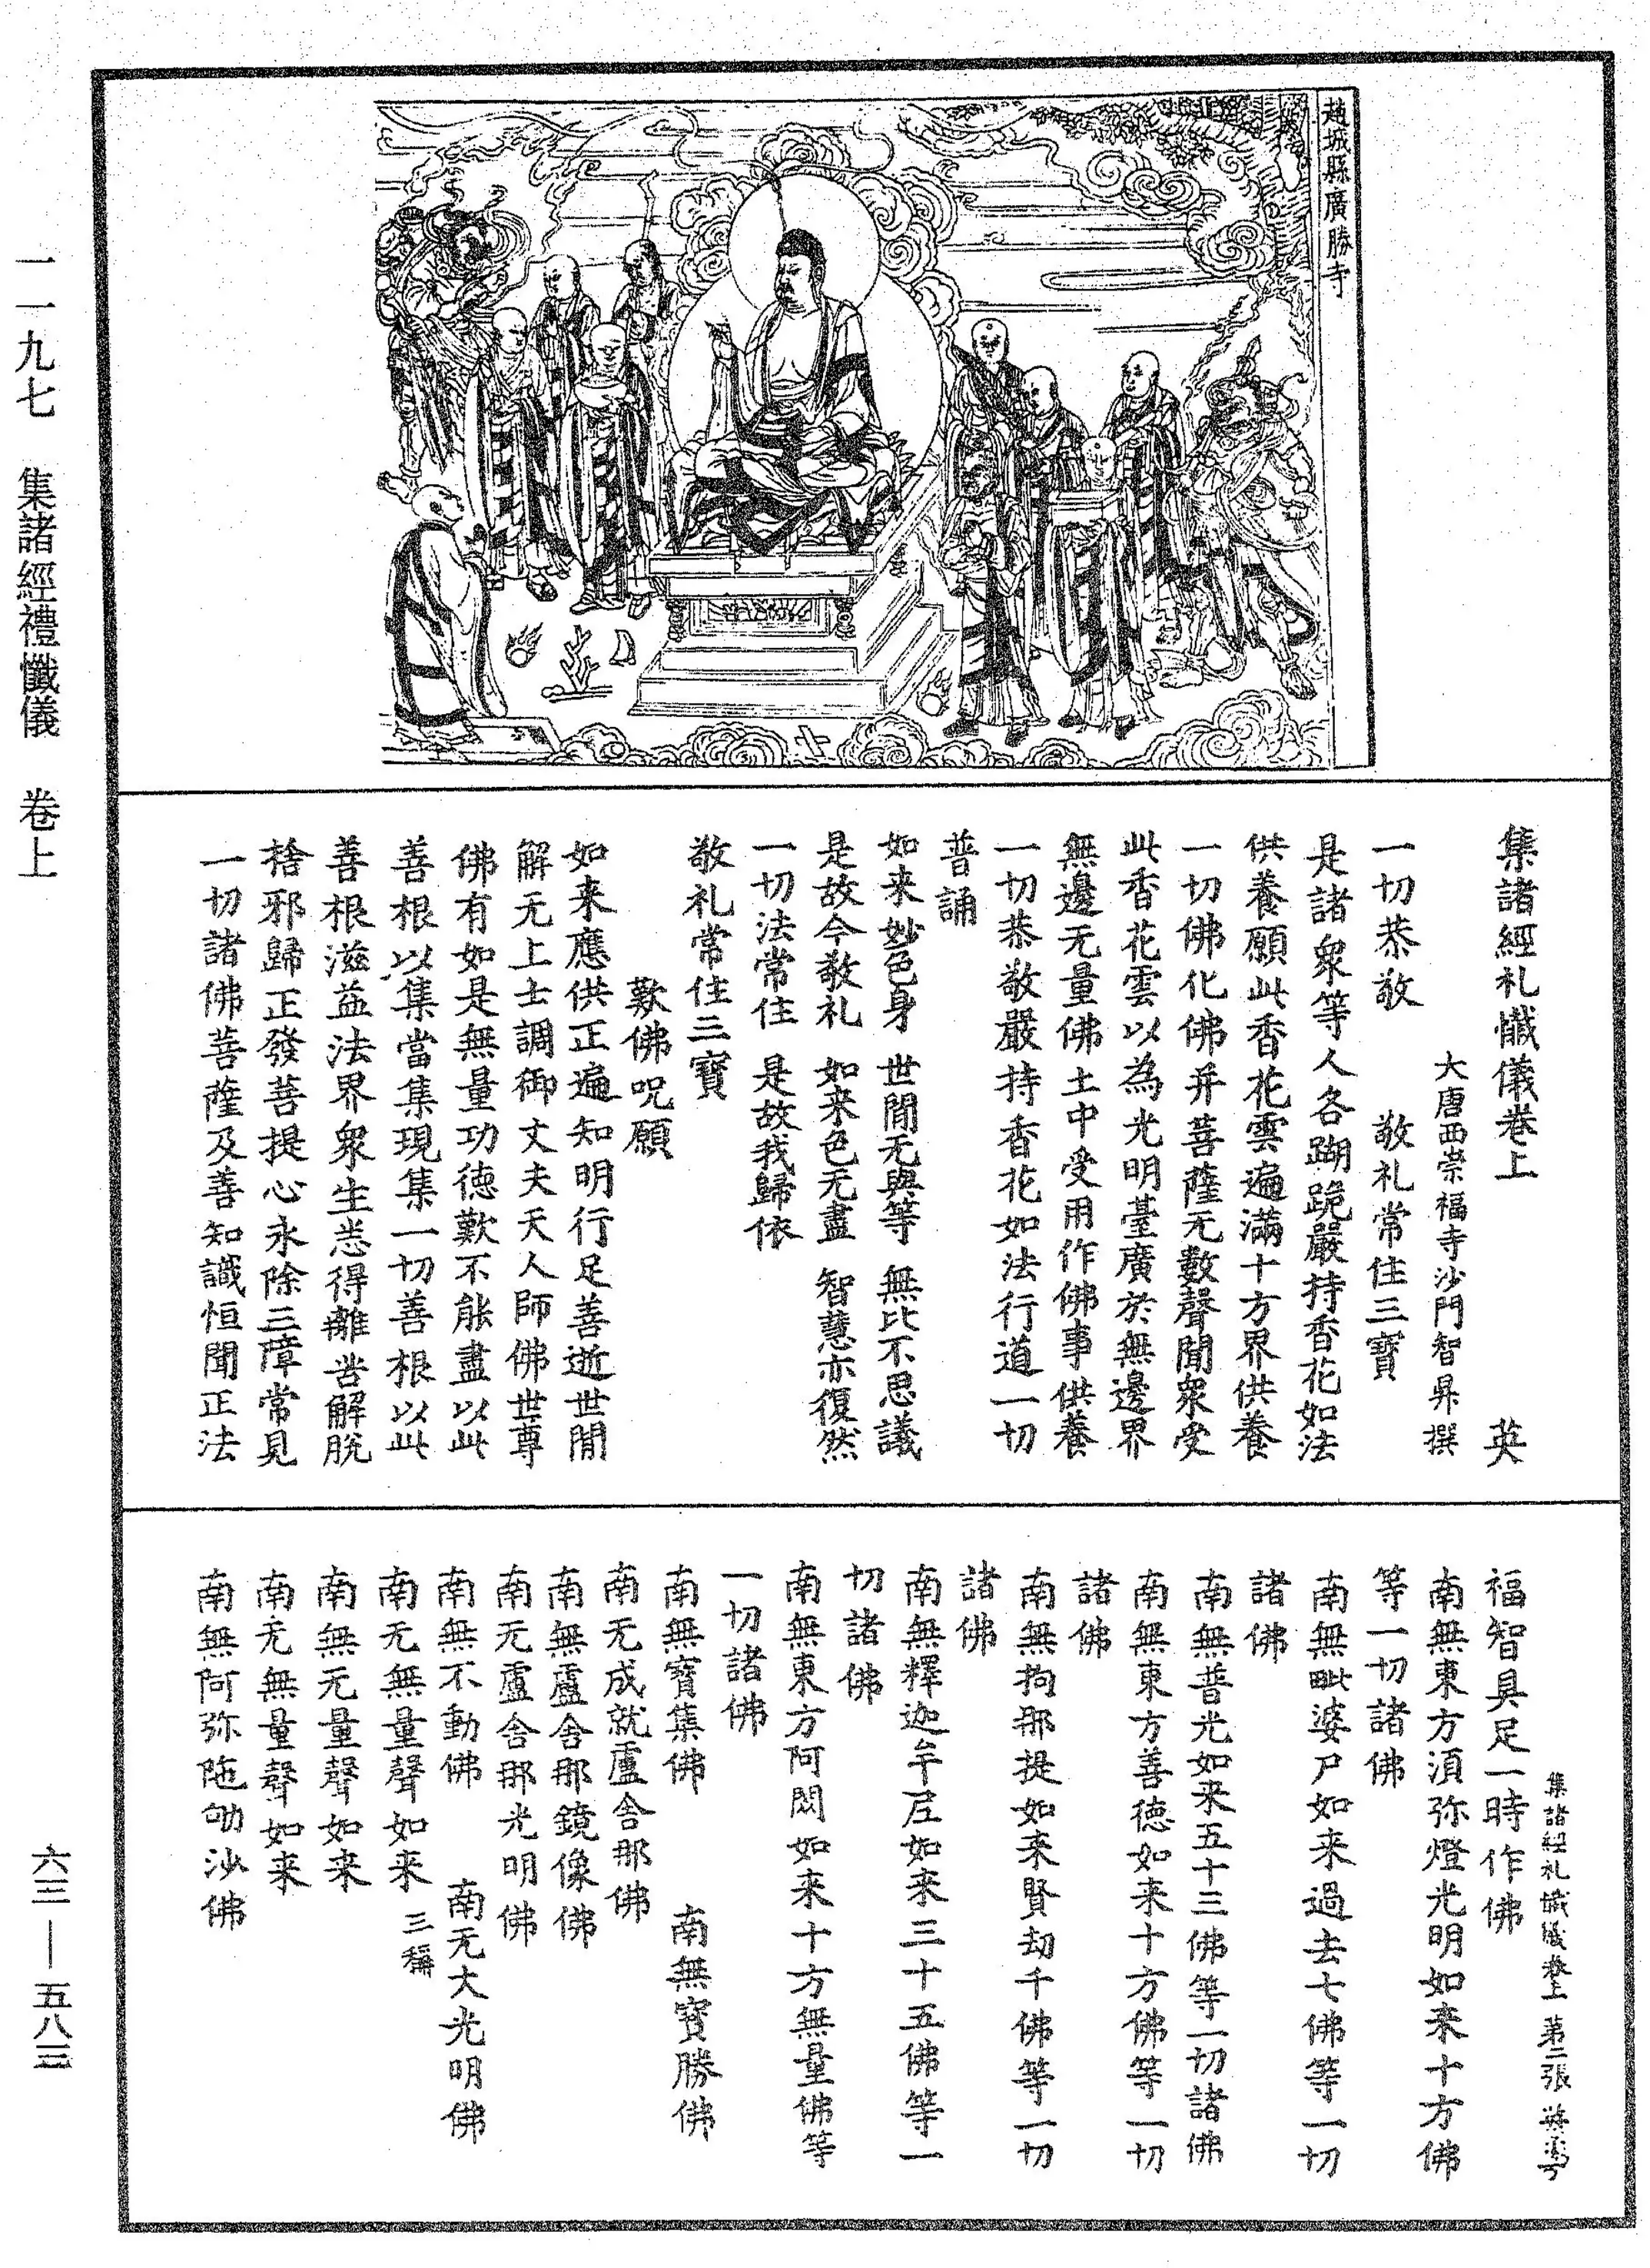 一一九七 集諸經禮懺儀 卷上
趙城縣廣勝寺
集諸經礼懺儀卷上 英
大唐西崇福寺沙門智昇撰
一切恭敬 敬礼常住三寳
是諸衆等人各𨂍跪嚴持香花如法
供養願此香花雲遍滿十方界供養
一切佛化佛并菩薩无數聲聞衆受
此香花雲以為光明臺廣於無邊界
無邊无量佛土中受用作佛事供養
一切恭敬嚴持香花如法行道一切
普誦
如来妙色身 世間无與等 無比不思議
是故今敬礼 如来色无盡 智慧亦復然
一切法常住 是故我歸依
敬礼常住三寳
歎佛呪願
如来應供正遍知明行足善逝世間
解无上士調御丈夫天人師佛世尊
佛有如是無量功德歎不能盡以此
善根以集當集現集一切善根以此
善根滋益法界衆生悉得離苦解脫
捨邪歸正發菩提心永除三障常見
一切諸佛菩薩及善知識恒聞正法
集諸經礼懺儀卷上 第二張 英字号
福智具足一時作佛
南無東方湏弥燈光明如来十方佛
等一切諸佛
南無毗婆尸如来過去七佛等一切
諸佛
南無普光如来五十三佛等一切諸佛
南無東方善德如来十方佛等一切
諸佛
南無拘那提如来賢劫千佛等一切
諸佛
南無釋迦牟尼如来三十五佛等一
切諸佛
南無東方阿閦如来十方無量佛等
一切諸佛
南無寳集佛 南無寳勝佛
南无成就盧舍那佛
南無盧舍那鏡像佛
南无盧舍那光明佛
南無不動佛 南无大光明佛
南无無量聲如来 三稱
南無无量聲如来
南无無量聲如来
南無阿弥陁劬沙佛
六三—五八三